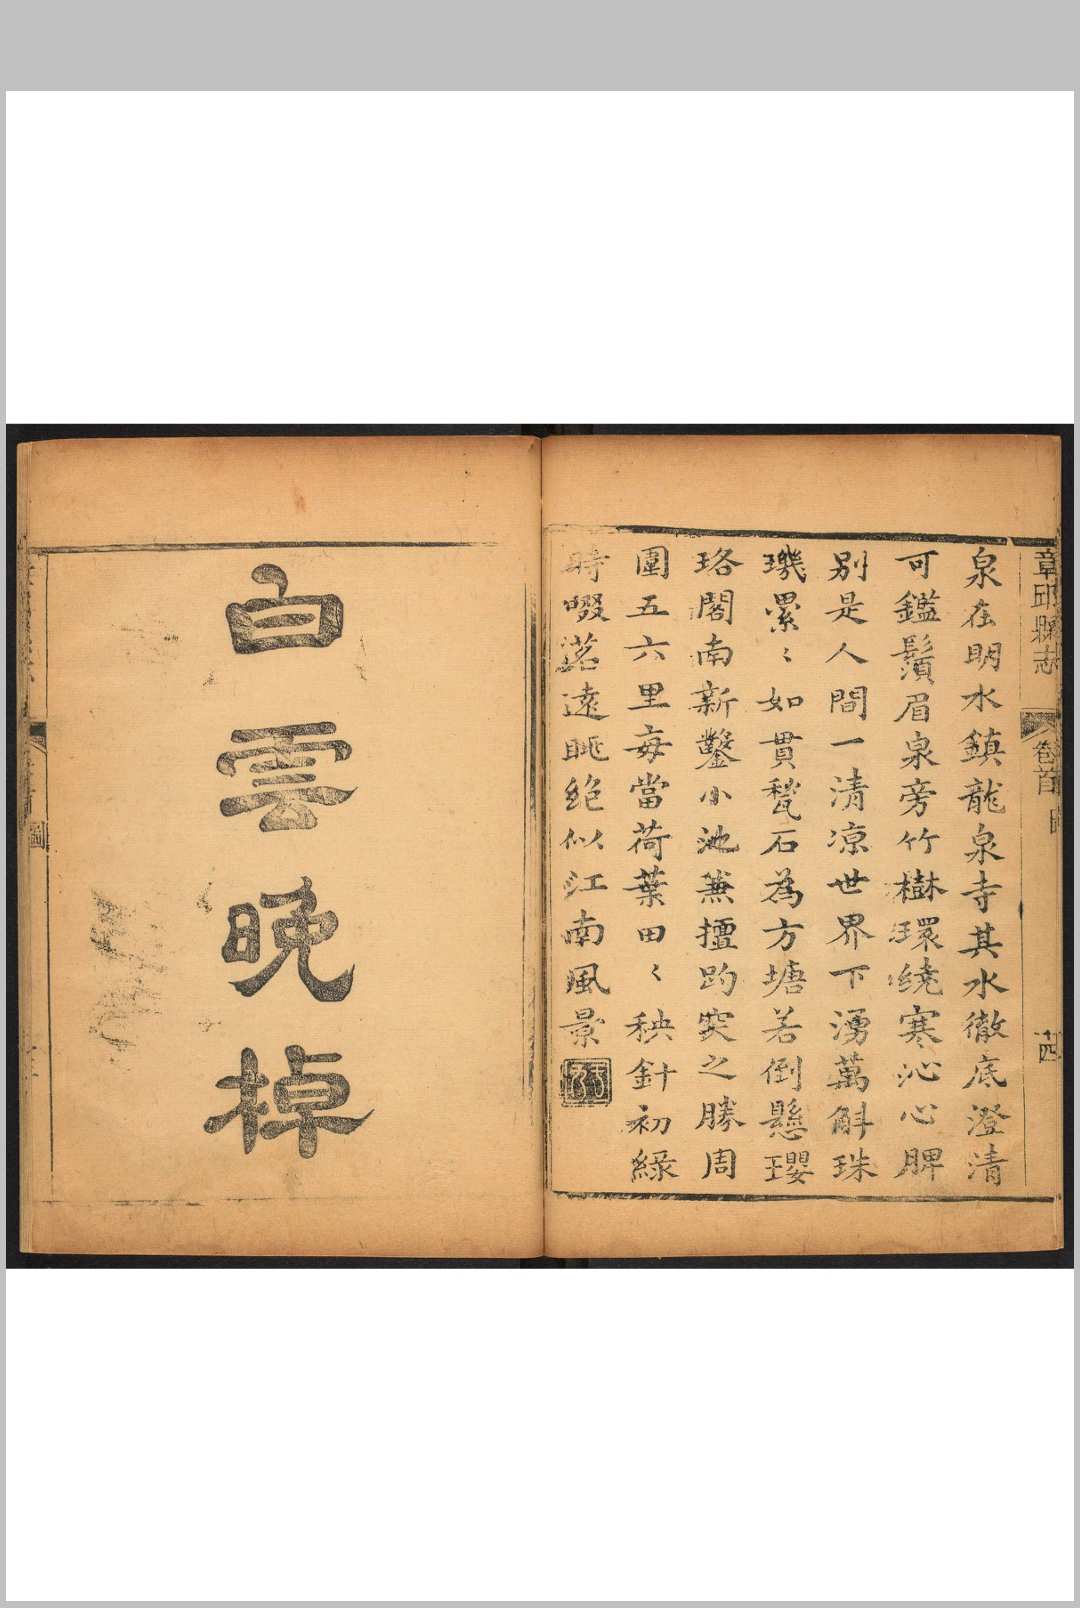 章邱縣志 卷首 圖 十四
泉在明水鎮龍泉寺其水徹底澄清
可鑑鬚眉泉旁竹樹環繞寒沁心脾
別是人間一清凉世界下湧萬斛珠
璣累〻如貫甃石為方塘若倒懸瓔
珞閣南新鑿小池兼擅趵突之勝周
圍五六里每當荷葉田〻秧針初綠
時啜茗遠眺絶似江南風景
白雲晚棹
圖